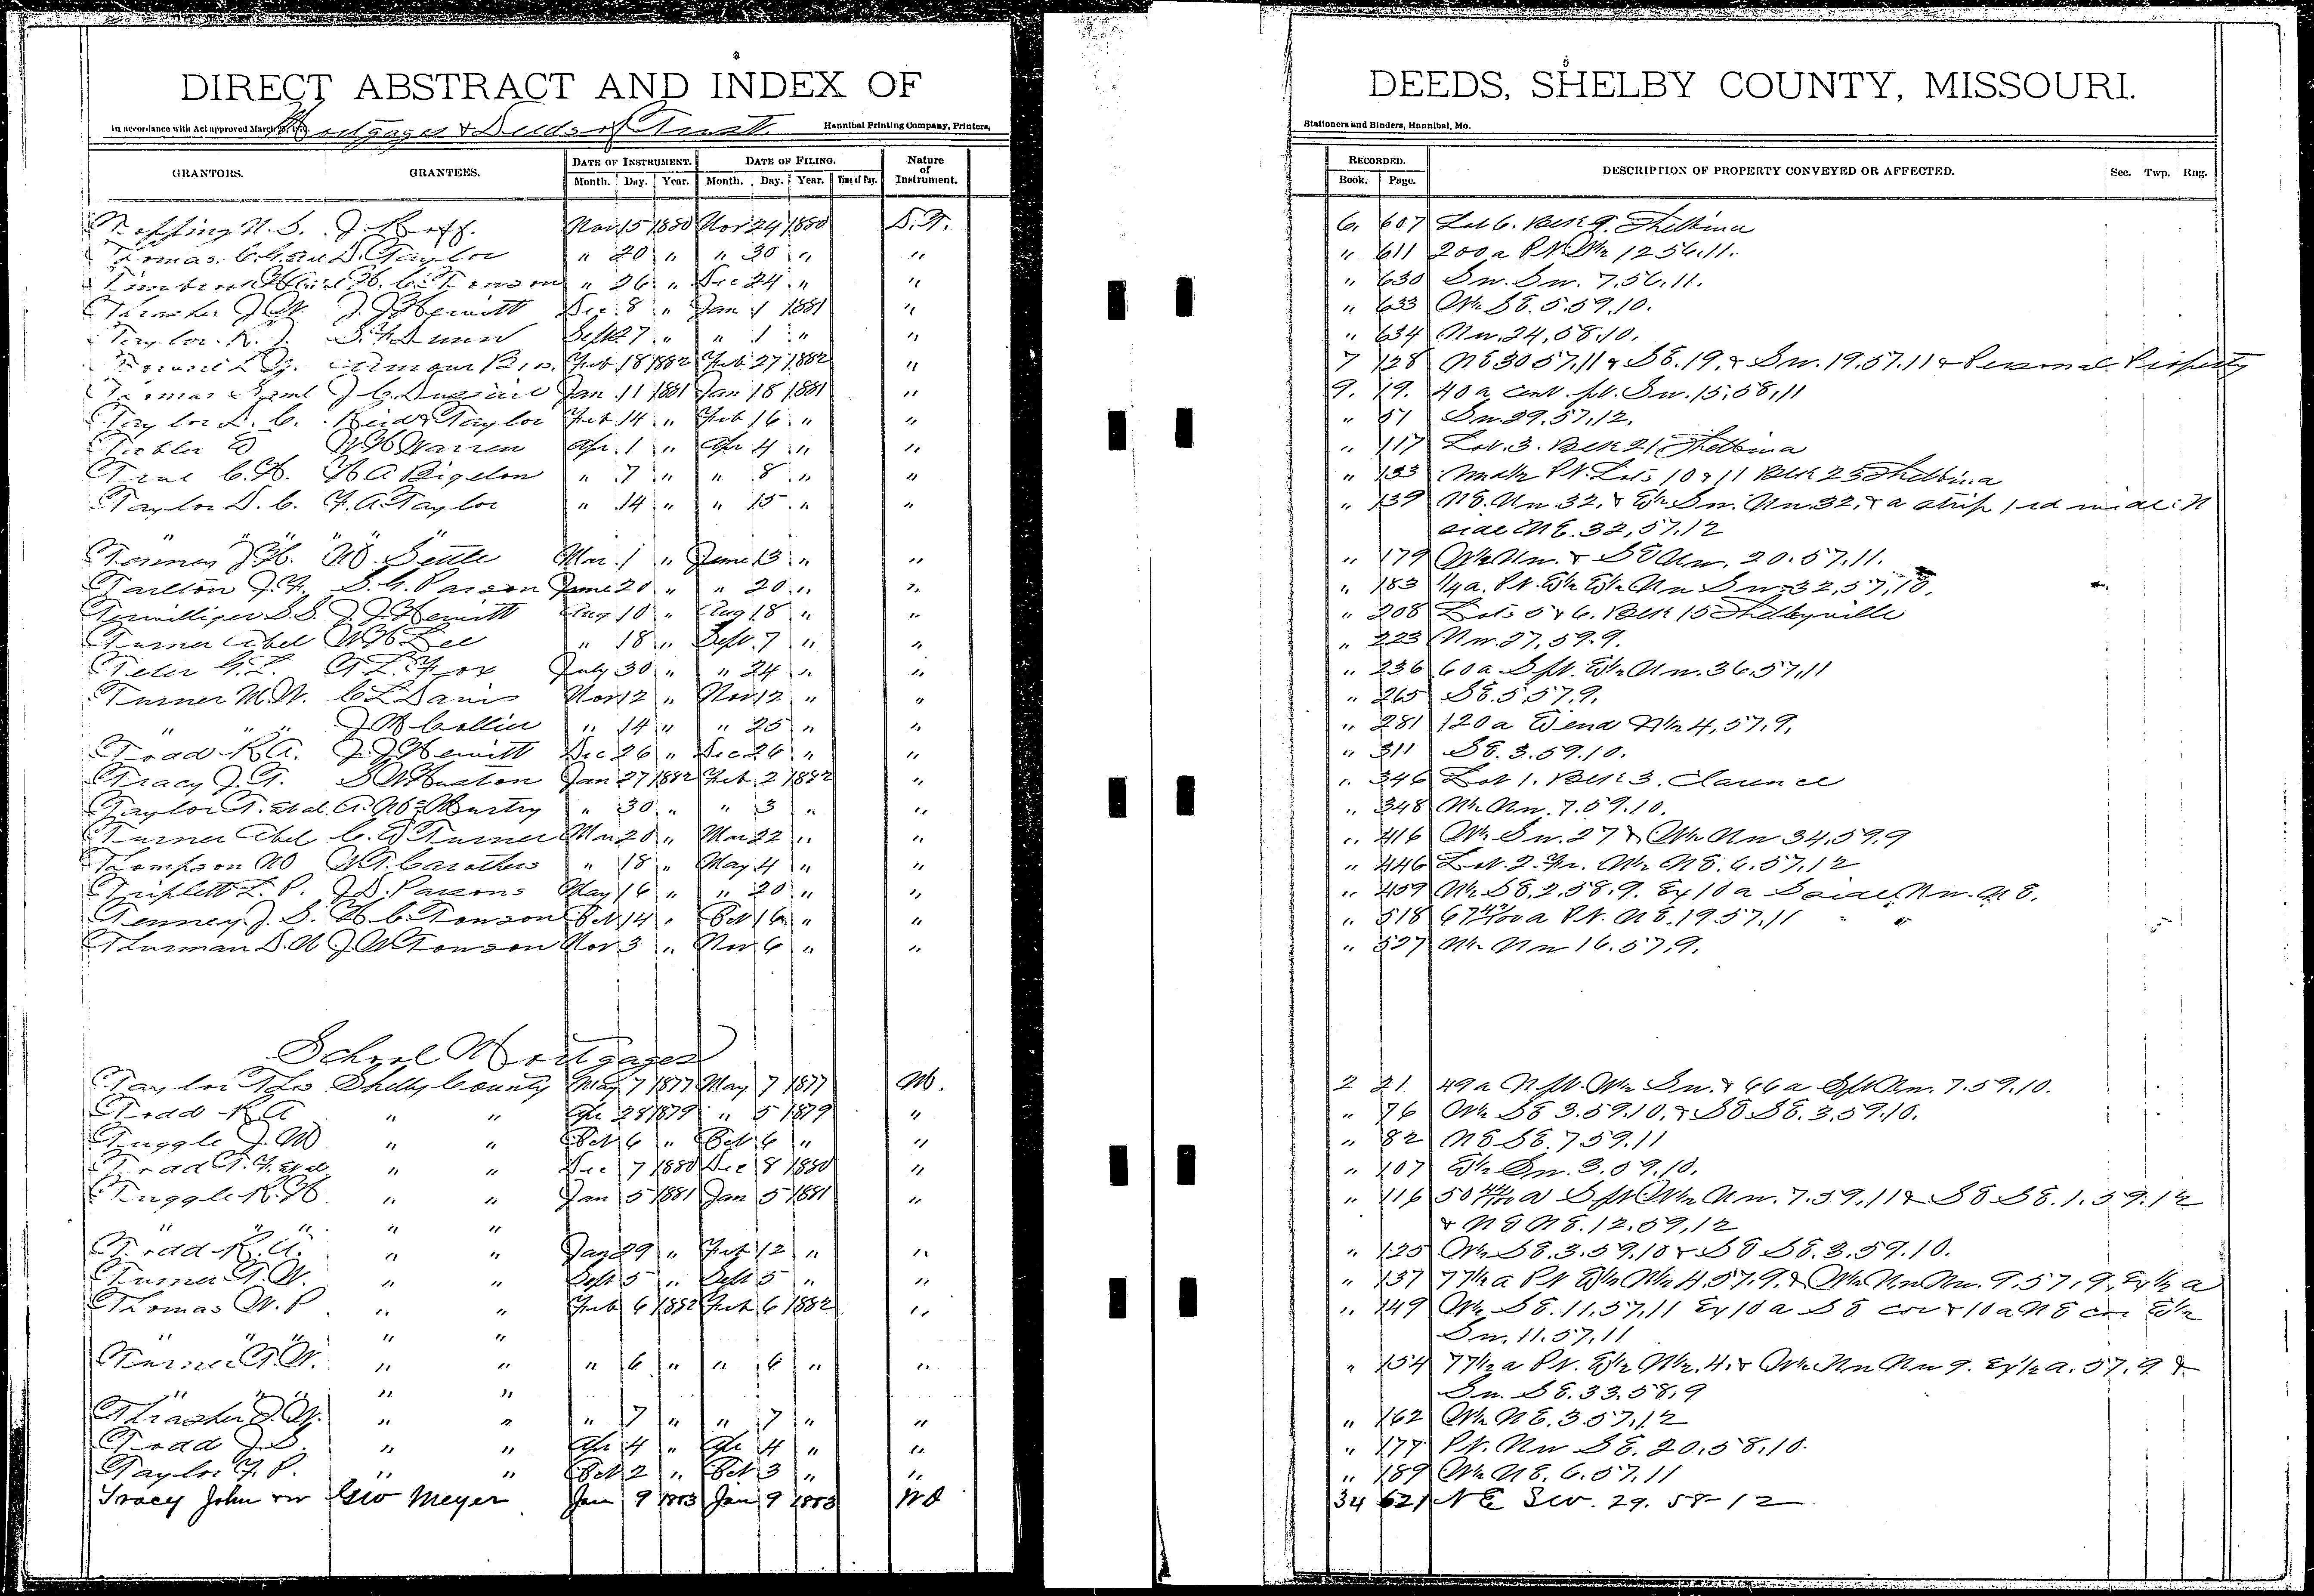 DIRECT ABSTRACT AND INDEX OF DEEDS, SHELBY COUNTY, MISSOURI.
Mortgages & Deeds of Trust
In accordance with Act approved March Hannibal Printing Company, Printers, Stationers and Binders, Hannibal, Mo.
GRANTORS. GRANTEES. DATE OF INSTRUMENT. DATE OF FILING. Nature of Instrument. RECORDED. DESCRIPTION OF PROPERTY CONVEYED OR AFFECTED. Sec. Twp. Rng.
Month. Day. Year. Month. Day. Year. Time of Day. Book. Page.
Topping N. S. J. Roff. Nov 15 1880 Nov 24 1880 D.T. 6. 607 Lot 6. Blk 9. Shelbina
Thomas. C. G. et al D. Taylor " 20 " " 30 " " " 611 200 a Pt. 12 56.11.
H. C. Tonson " 26 " Dec 24 " " " 630 Sw. Sw. 7.56.11.
Thrasher J. W. J. J. Hewitt Dec 8 " Jan 1 1881 " " 633 W½ SE. 5.59.10.
Taylor. R. J. S. F. Dunn Sept 27 " " 1 " " " 634 Nw. 24, 58.10.
Armour Bros. Feb 18 1882 Feb 27 1882 " 7 128 NE 30 57.11 & SE. 19. & Sw. 19.57.11 & Personal Property
Thomas Saml J. C. Jan 11 1881 Jan 18 1881 " 9. 19. 40 a cent. pt. Sw. 15, 58, 11
Taylor D. C. Reid & Taylor Feb 14 " Feb 16 " " " 51 Sw 29, 57, 12.
Tobler W H Warren Apr 1 " Apr 4 " " " 117 Lot. 3. Blk 21 Shelbina
True C. H. H A Bigelow " 7 " " 8 " " " 133 Pt. Lots 10 & 11 Blk 25 Shelbina
Taylor D. C. F. A. Taylor " 14 " " 15 " " " 139 NE. Nw. 32, & E½ Sw. Nw. 32, & a strip 1 rd wide N
" " " " side NE. 32, 57, 12
J. H. W Settle Mar 1 " June 13 " " " 179 W½ Nw. & SE Nw. 20. 57. 11.
Tarlton J. F. S. G. Parson June 20 " " 20 " " " 183 ¼ a. Pt. E½ E½ Nw Sw 32, 57, 10.
Terwilliger S. S. J. J. Hewitt Aug 10 " Aug 18 " " " 208 Lots 5 & 6. Blk 15 Shelbyville
Turner Abel W H Lee " 18 " Sept. 7 " " " 223 Nw. 27, 59. 9.
Teter G. L. G. L. Fox July 30 " " 24 " " " 236 60 a S pt. E½ Nw. 36, 57, 11
Turner M. W. C L Davis Nov 12 " Nov 12 " " " 265 SE. 5 57, 9.
" " " J. M Collier " 14 " " 25 " " " 281 120 a E end N½ 4, 57, 9.
Todd R. A. J. J. Hewitt Dec 26 " Dec 26 " " " 311 SE. 3. 59. 10.
Tracy J. T. S W Huston Jan 27 1882 Feb 2 1882 " " 346 Lot 1. Blk 3. Clarence
Taylor T. et al. A. McMurtry " 30 " " 3 " " " 348 N½ Nw. 7. 59. 10.
Turner Abel C. E Turner Mar 20 " Mar 22 " " " 416 W½ Sw. 27 & W½ Nw 34, 59, 9
Thompson W. T. Carothers " 18 " May 4 " " " 446 Lot. 2. Fr. W½ NE. 6. 57. 12
Triplett L. P. J. D. Parsons May 16 " " 20 " " " 459 W½ SE. 2. 58. 9. Ex 10 a S side Nw. NE.
Tenney J. S. H. C. Tonson Oct 14 " Oct 16 " " " 518 67 a Pt. NE. 19. 57. 11
Thurman D. W J W Tonson Nov 3 " Nov. 6 " " " 527 N½ Nw 16. 57, 9.
School Mortgages
Taylor Thos Shelby County May 7 1877 May 7 1877 M. 2 21 49 a N pt. W½ Sw. & 66 a S pt Nw. 7. 59. 10.
Todd R A " " Apr 28 1879 " 5 1879 " " 76 W½ SE 3. 59. 10. & SE SE. 3. 59. 10.
Tuggle J. M " " Oct 6 " Oct 6 " " " 82 NE SE. 7 59. 11
Todd T. F. et al " " Dec 7 1880 Dec 8 1880 " " 107 E½ Sw. 3. 59. 10.
Tuggle R. H. " " Jan 5 1881 Jan 5 1881 " " 116 50 44/100 a S pt W½ Nw. 7. 59, 11 & SE SE. 1. 59. 12
" " " " " & NE NE. 12. 59, 12
Todd R. A. " " Jan 29 " Feb 12 " " " 125 W½ SE. 3. 59. 10 & SE SE. 3. 59. 10.
Turner T. W. " " Sept 5 " Sept 5 " " " 137 77½ a Pt E½ N½ 4, 57, 9. & W½ Nw Nw. 9. 57, 9. Ex ½ a
Thomas W. P. " " Feb 6 1882 Feb 6 1882 " " 149 W½ SE. 11. 57, 11 Ex 10 a SE cor & 10 a NE cor E½
" " " " " Sw. 11. 57. 11
Turner T. W. " " " 6 " " 6 " " " 154 77½ a Pt. E½ N½. 4. & W½ Nw Nw 9. Ex ½ a. 57. 9 &
" " " " " Sw. SE. 33. 58, 9
Thrasher J. W. " " " 7 " " 7 " " " 162 W½ NE. 3. 57, 12
Todd J. S. " " Apr 4 " Apr 4 " " " 177 Pt. Nw SE. 20. 58, 10.
Taylor F. P. " " Oct 2 " Oct 3 " " " 189 W½ NE. 6. 57. 11
Tracy John & w Geo Meyer Jan 9 1883 Jan 9 1883 WD 34 621 NE Sec. 29. 58-12